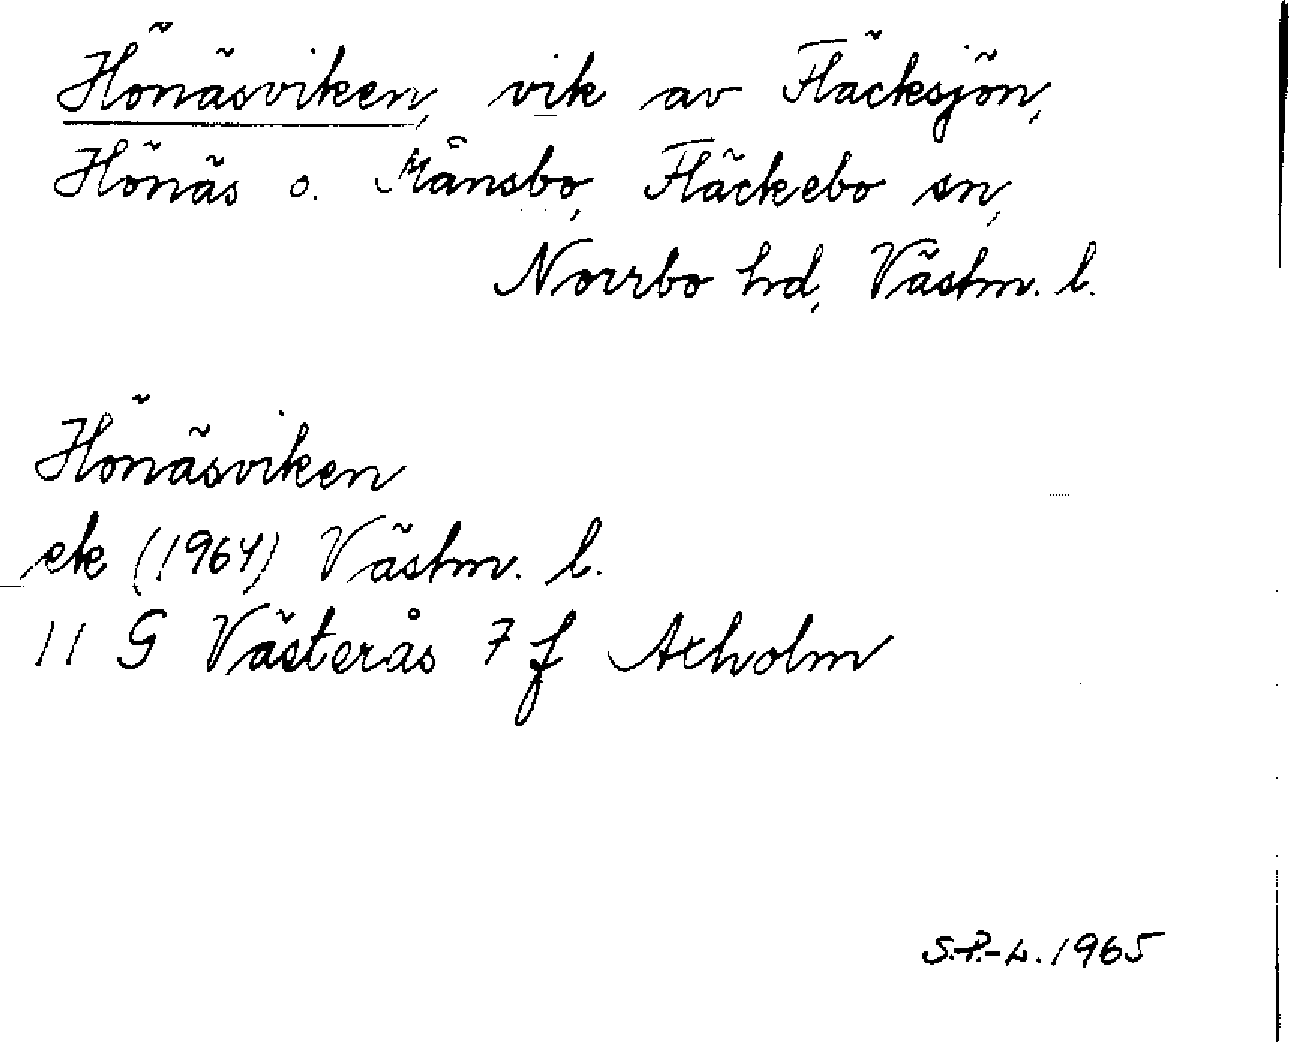 Hönäsviken, vik av Fläcksjön,
Hönäs o. Månsbo, Fläckebo sn,
Norrbo hd, Västm. l.
Hönäsviken
ek (1964) Västm. l.
11 G Västerås 7 f Axholm
S.P.-L. 1965